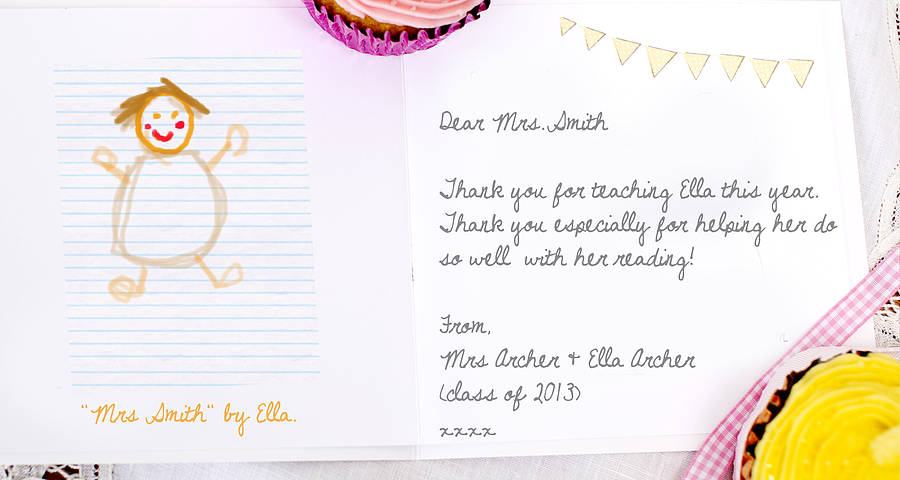 "Mrs Smith" by Ella.
Dear Mrs. Smith
Thank you for teaching Ella this year.
Thank you especially for helping her do
so well with her reading!
From,
Mrs Archer & Ella Archer
(class of 2013)
xxxx